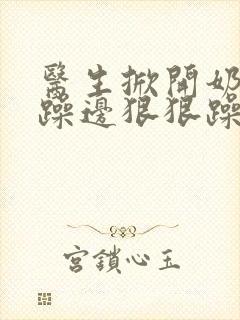 醫生掀開奶
躁邊狠狠躁
宮鎖心玉